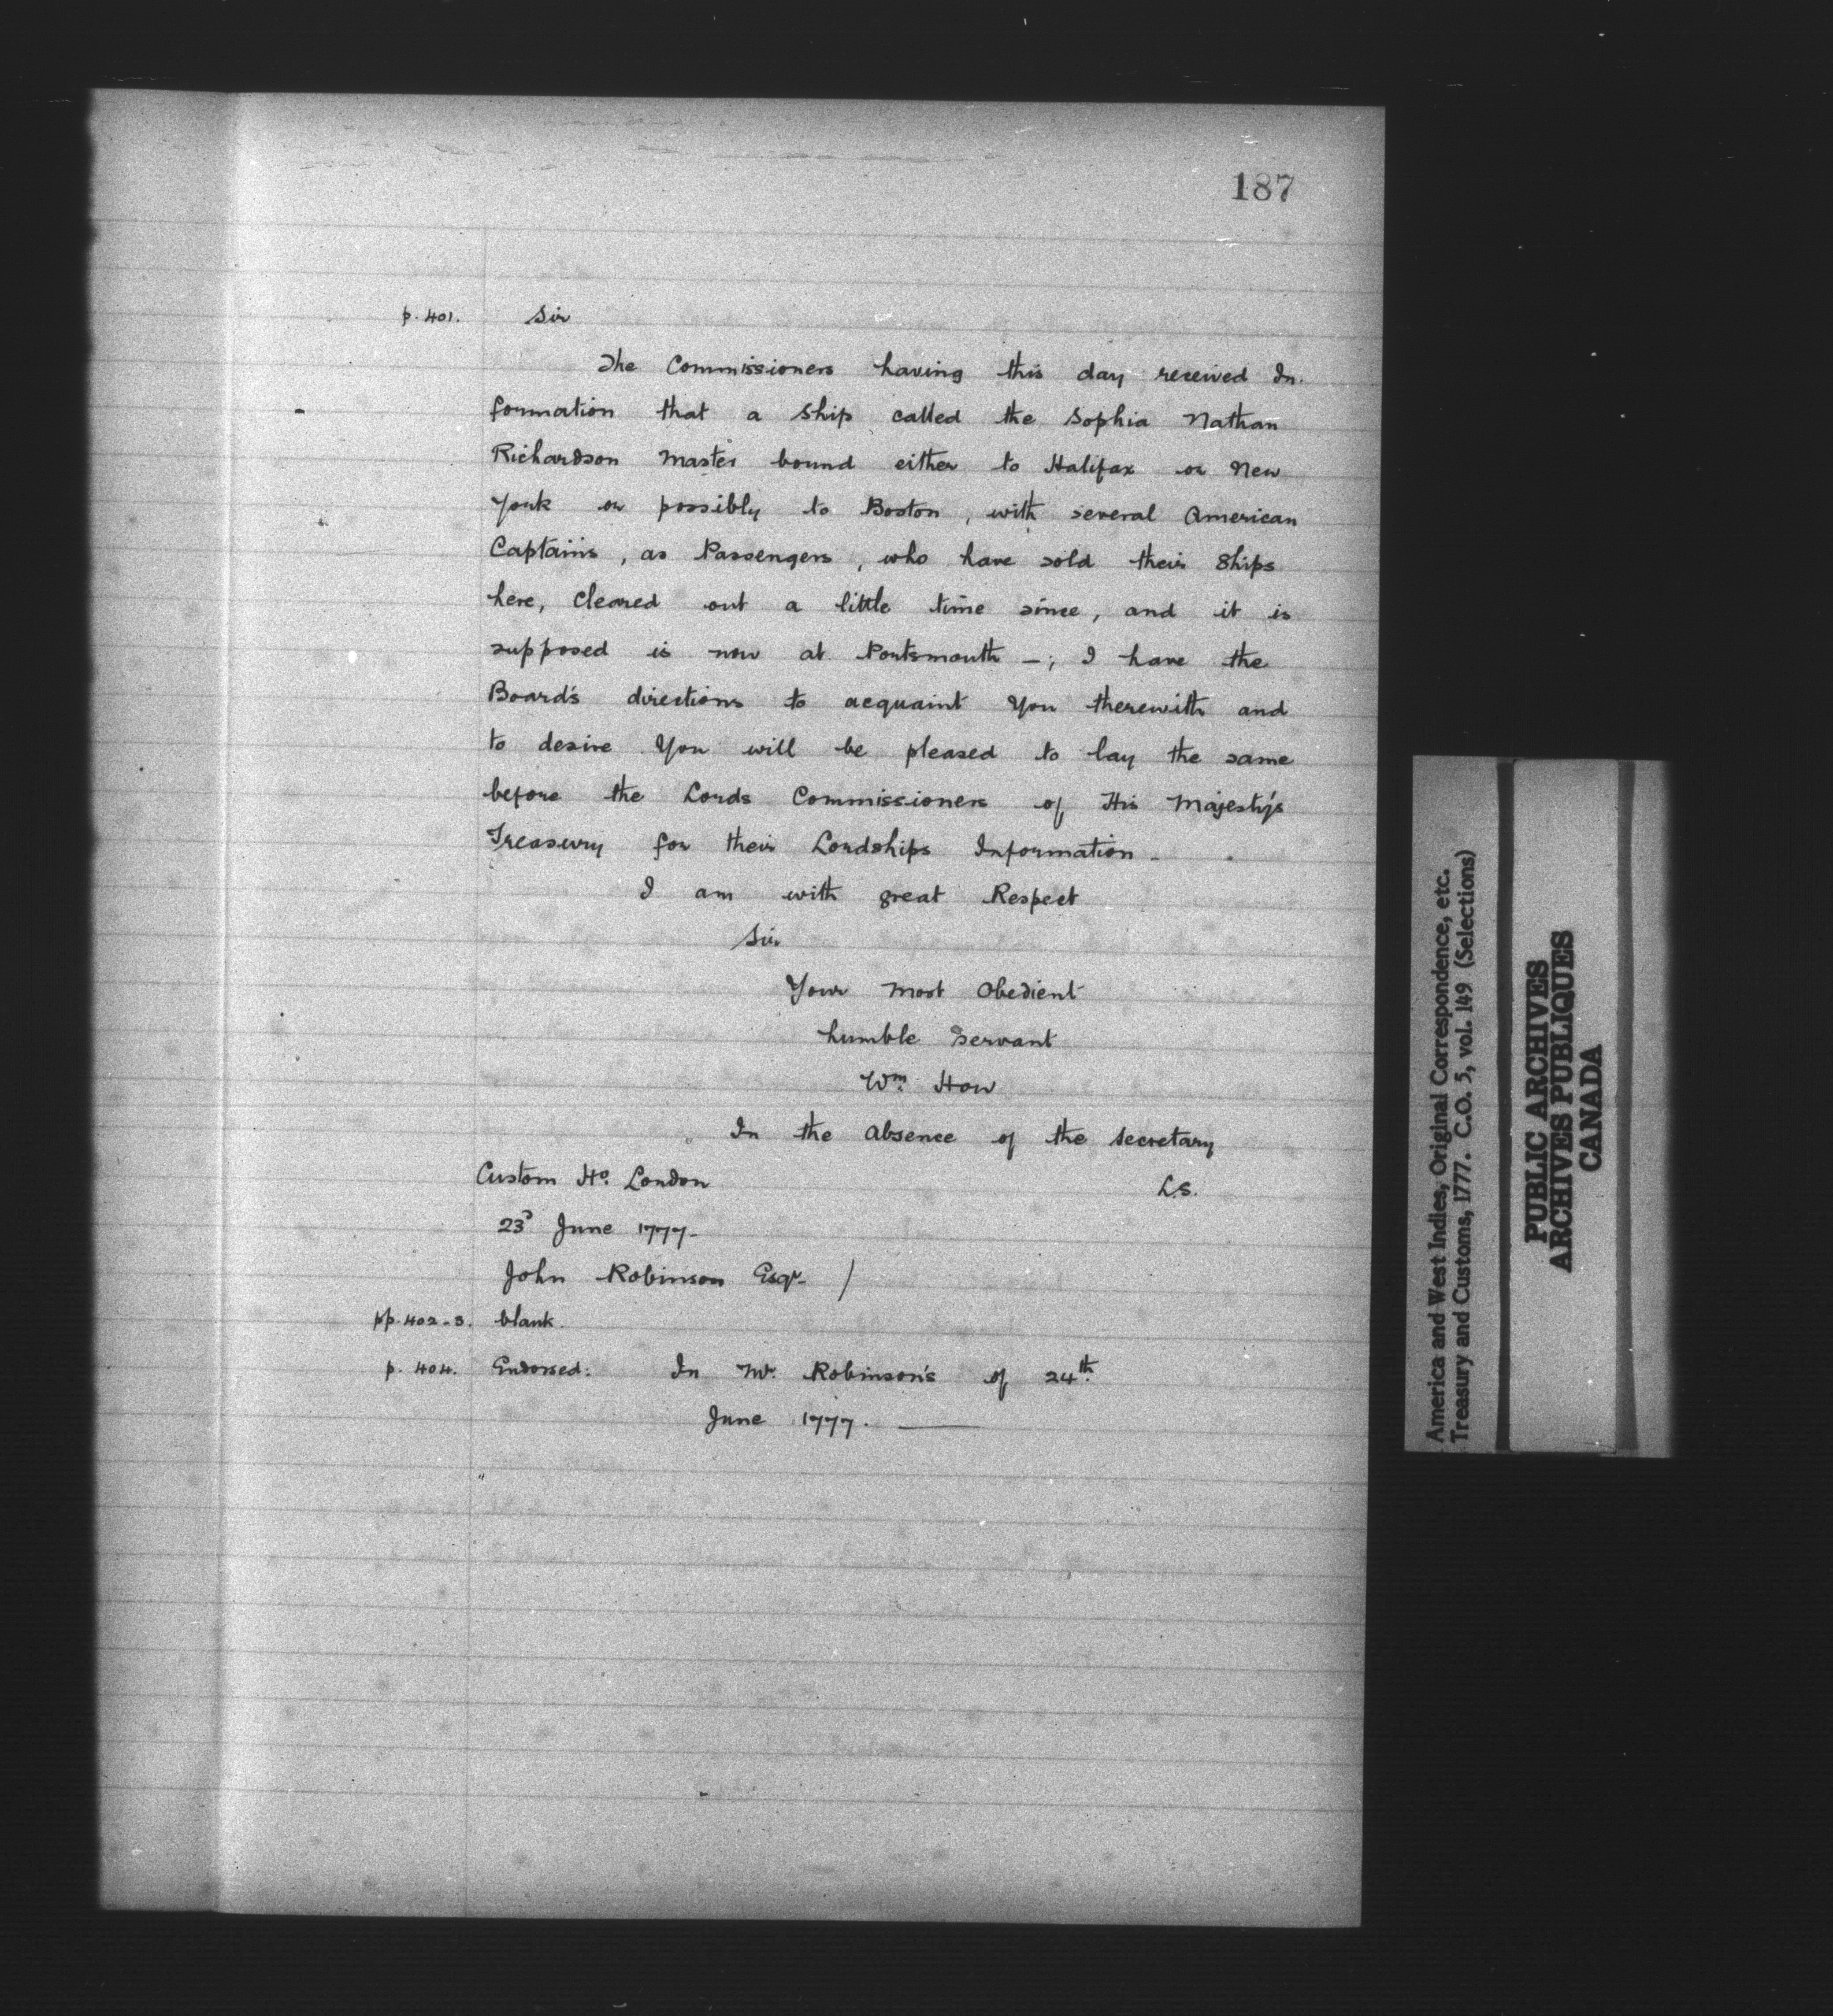 187
p. 401. Sir
The Commissioners having this day received In-
formation that a Ship called the Sophia Nathan
Richardson Master bound either to Halifax or New
York or possibly to Boston, with several American
Captains, as Passengers, who have sold their Ships
here, cleared out a little time since, and it is
supposed is now at Portsmouth —; I have the
Board's directions to acquaint You therewith and
to desire You will be pleased to lay the same
before the Lords Commissioners of His Majesty's
Treasury for their Lordships Information -
I am with great Respect
Sir
Your most Obedient
humble Servant
Wm. How
In the absence of the Secretary
Custom Ho. London L.S.
23d June 1777-
John Robinson Esqr. /
pp. 402-3. blank.
p. 404. Endorsed: In Mr. Robinson's of 24th.
June 1777. —
America and West Indies, Original Correspondence, etc.
Treasury and Customs, 1777. C.O. 5, vol. 149 (Selections)
PUBLIC ARCHIVES
ARCHIVES PUBLIQUES
CANADA